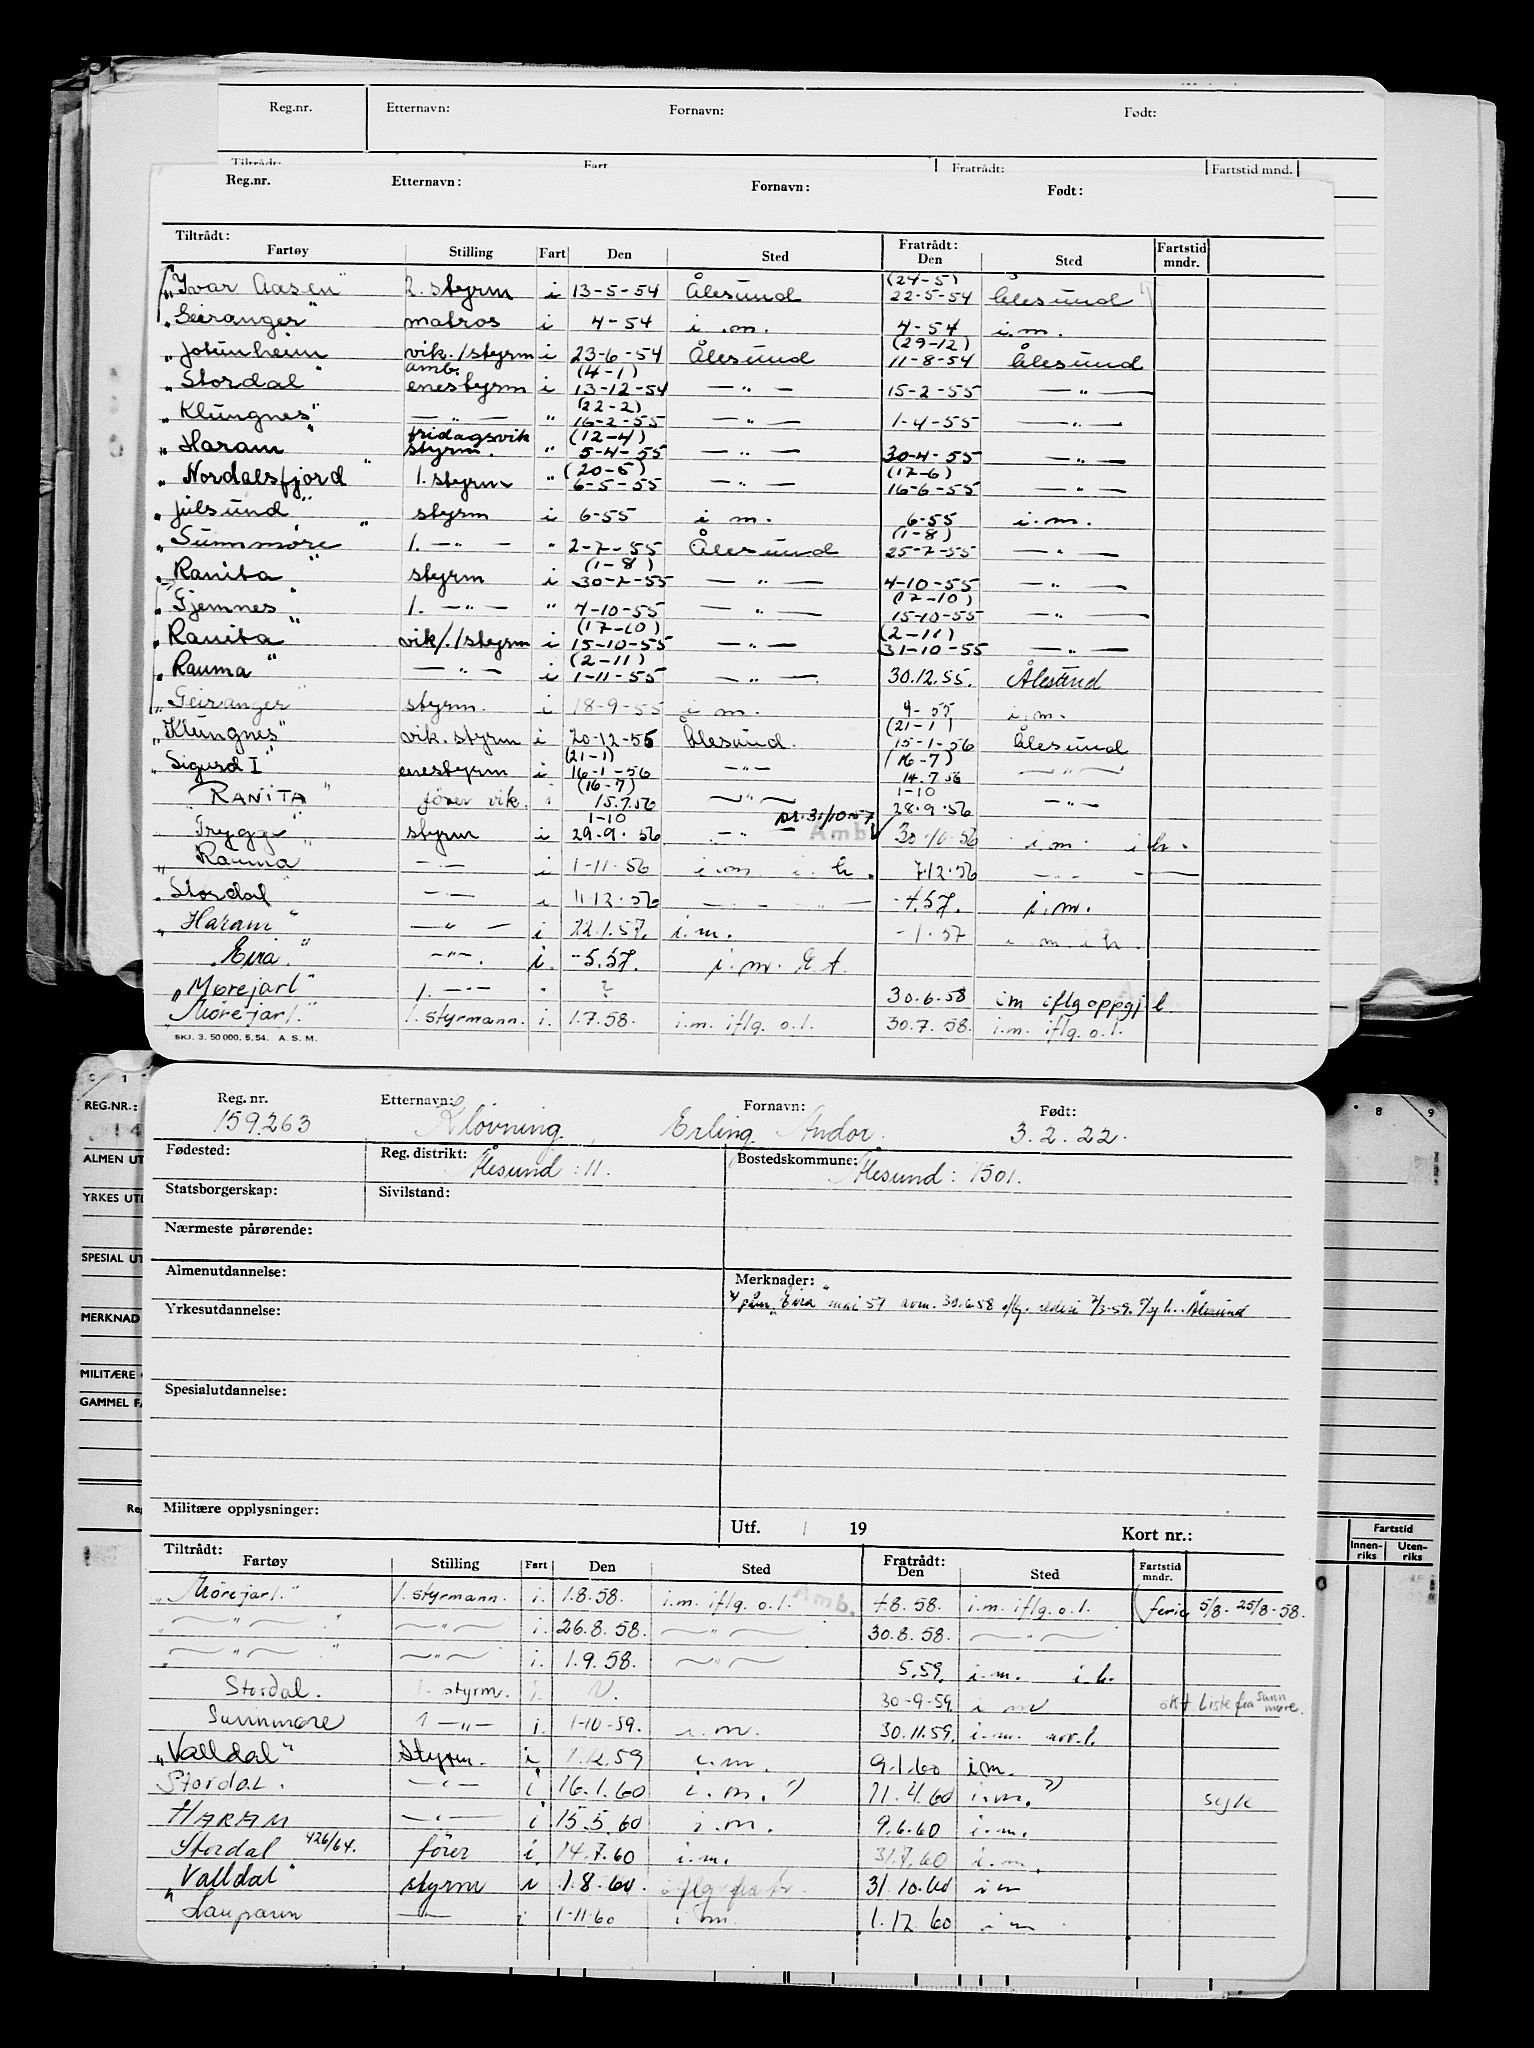 Reg.nr. Etternavn: Fornavn: Født:
Tiltrådt: Fart Fratrådt: Fartstid mnd.
Reg.nr. Etternavn: Fornavn: Født:
Tiltrådt: Fratrådt: Fartstid
Fartøy Stilling Fart Den Sted Den Sted mndr.
(24-5)
"Ivar Aasen" 2. styrm i 13-5-54 Ålesund 22-5-54 Ålesund
"Geiranger" matros i 4-54 i.m. 4-54 i.m.
(29-12)
"Jotunheim vik. 1 styrm i 23-6-54 Ålesund 11-8-54 Ålesund
amb. (4-1)
"Stordal" enestyrm i 13-12-54 — " — 15-2-55 — " —
(22-2)
"Klungnes" — " — " 16-2-55 — " — 1-4-55 — " —
fridagsvik (12-4)
"Haram" styrm. " 5-4-55 — " — 30-4-55 — " —
(20-5) (17-6)
"Nordalsfjord" 1. styrm " 6-5-55 — " — 16-6-55 — " —
"Julsund" styrm i 6-55 i m. 6-55 i.m.
(1-8)
"Sunnmøre" 1. — " — " 2-7-55 Ålesund 25-7-55 — " —
(1-8)
"Ranita" styrm i 30-7-55 — " — 4-10-55 — " —
(17-10)
"Gjemnes" 1. — " — " 4-10-55 — " — 15-10-55 — " —
(17-10) (2-11)
"Ranita" vik/. 1 styrm i 15-10-55 — " — 31-10-55 — " —
(2-11)
"Rauma" — " — i 1-11-55 — " — 30.12.55. Ålesund
"Geiranger" styrm. i 18-9-55 i m. 9-55 i.m.
(21-1)
"Klungnes" vik. styrm i 20-12-55 Ålesund. 15-1-56 Ålesund
(21-1) (16-7)
"Sigurd I" enestyrm i 16-1-56 — " — 14.7.56 — " —
(16-7) 1-10
"RANITA" fører vik. i 15.7.56 — " — 28.9.56 — " —
1-10 31/10.57
"Trygg" styrm i 29.9.56 — " — Amb. 30.10.56 i m. i h.
"Rauma" — " — i 1-11-56 i.m. i. h. 7.12.56 — " —
"Stordal — " — i 11.12.56 — " — -4.57. i.m.
"Haram" — " — i 22.1.57. i.m. -1.57 i m i h.
"Eira" — " —. i. -5.57. i.m.
"Mørejarl" 1. — " — . ? 30.6.58 i m iflg oppgj
"Mørejarl." 1. styrmann. i. 1.7.58. i.m. iflg. o.l. 30.7.58. i.m. iflg. o.l.
SKJ. 3. 50 000. 5. 54. A. S. M.
Reg. nr. Etternavn: Fornavn: Født:
159.263 Kløvning, Erling Andor. 3.2.22.
Fødested: Reg. distrikt: Ålesund : 11. Bostedskommune: Ålesund : 1501.
Statsborgerskap: Sivilstand:
Nærmeste pårørende:
Almenutdannelse: Merknader:
Yrkesutdannelse: "Eira" mai 57 avm. 30.6.58 iflg. rederi Ålesund
Spesialutdannelse:
Militære opplysninger:
Utf. / 19 Kort nr.:
Tiltrådt: Fratrådt: Fartstid
Fartøy Stilling Fart Den Sted Den Sted mndr.
"Mørejarl." 1. styrmann. i. 1.8.58. i.m. iflg. o.l. Amb. 4.8.58. i.m. iflg. o.l. ferie 5/8 - 25/8-58.
— " — — " — i. 26.8.58. — " — 30.8.58. — " —
— " — — " — i. 1.9.58. — " — 5.59. i.m. i.h.
Stordal. 1. styrm. i. 30-9-59. i m okt liste fra Sunnmøre.
Sunnmøre 1 — " — i. 1-10-59. i.m. 30.11.59. i.m.
"Valldal" Styrm. i 1.12.59 i.m. 9.1.60 i.m.
Stordal. — " — i 16.1.60 i.m. 11.4.60 i.m. syk
HARAM — " — i 15.5.60 i.m. 9.6.60 i.m.
Stordal 426/64. fører i. 14.7.60 i.m. 31.7.60 i.m.
"Valldal" styrm i 1.8.60 31.10.60 i m
— " — i 1-11-60 i m. 1.12.60 i m
REG.NR.:
ALMEN UT
YRKES UT
SPESIAL UT
MERKNAD
MILITÆRE
GAMMEL F
Fartstid
Innenriks Utenriks